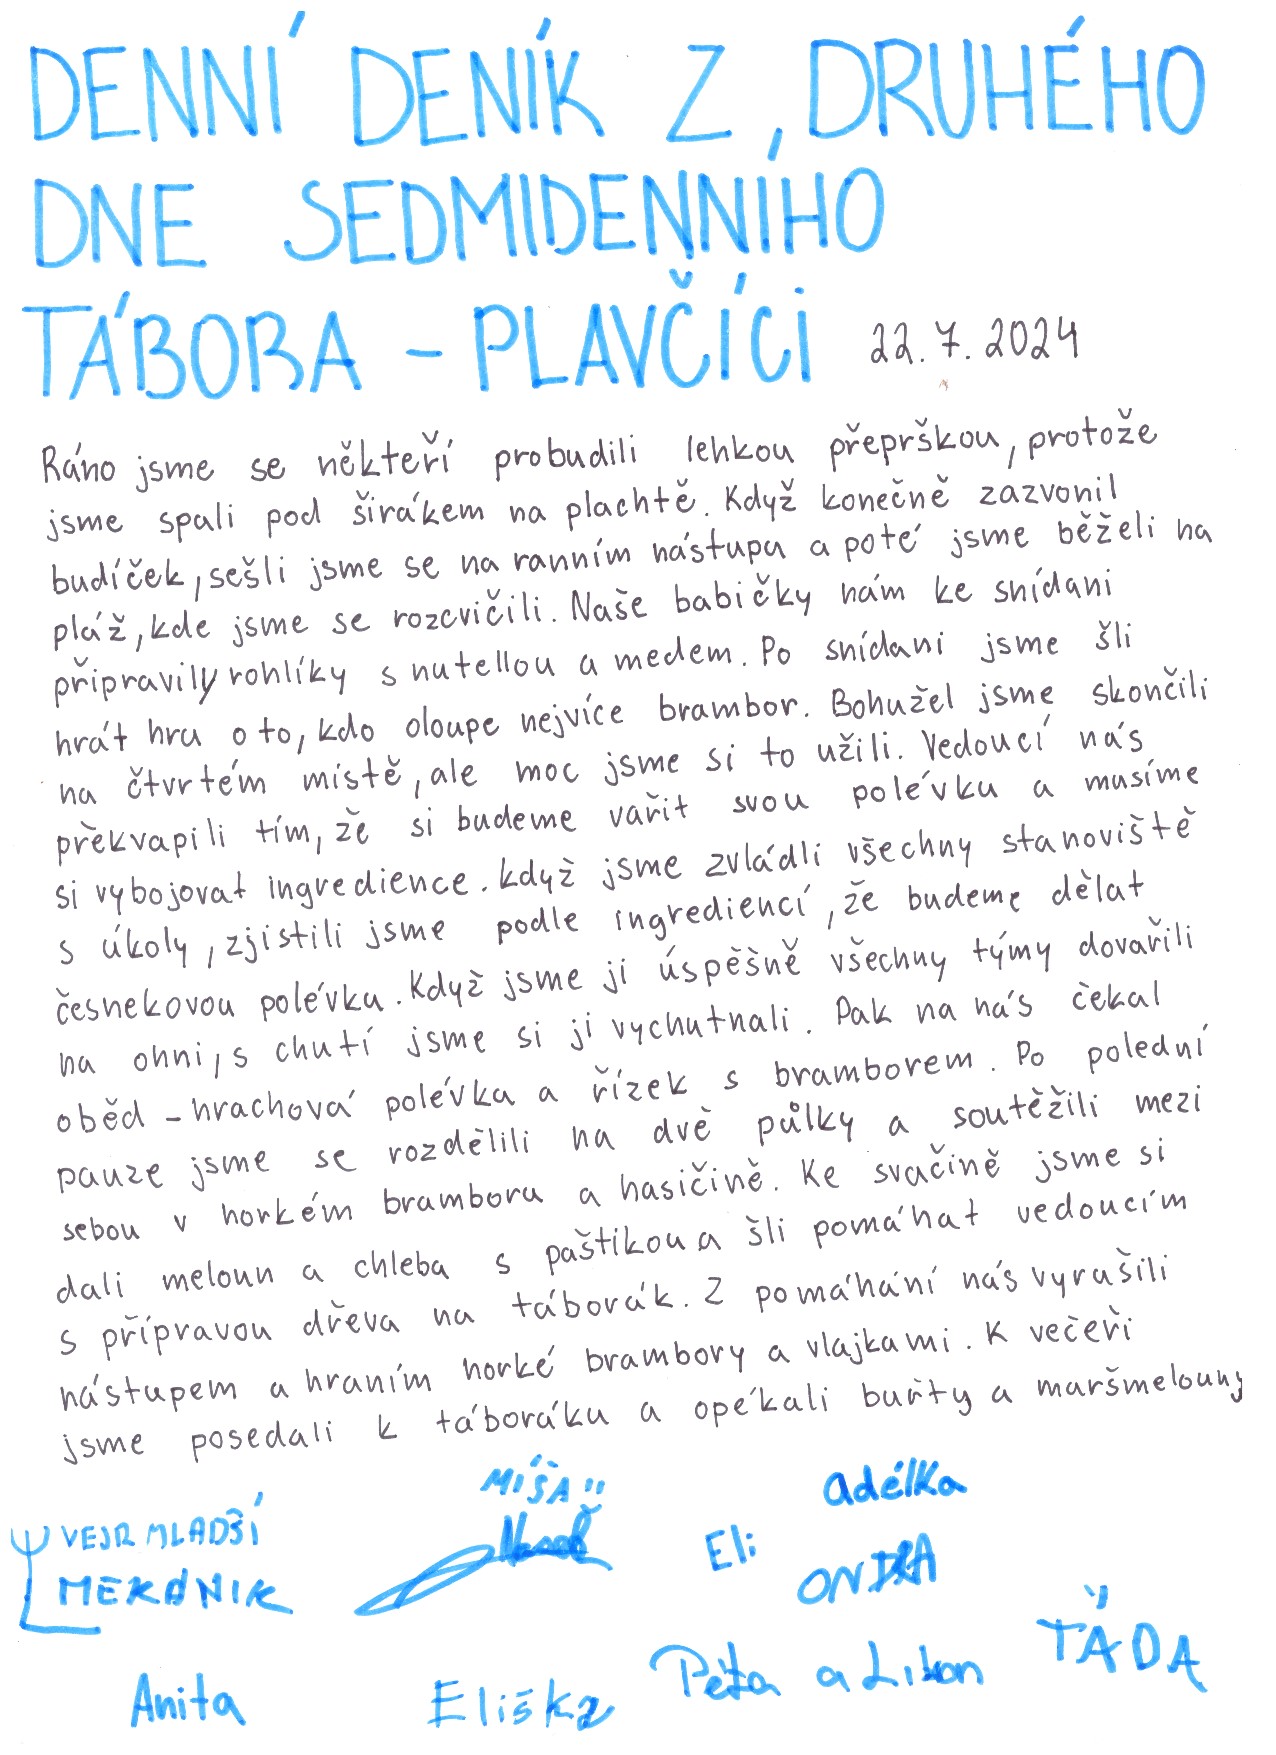 DENNÍ DENÍK Z DRUHÉHO
DNE SEDMIDENNÍHO
TÁBORA - PLAVČÍCI 22.7.2024
Ráno jsme se někteří probudili lehkou přeprškou, protože
jsme spali pod širákem na plachtě. Když konečně zazvonil
budíček, sešli jsme se na ranním nástupu a poté jsme běželi na
pláž, kde jsme se rozcvičili. Naše babičky nám ke snídani
připravily rohlíky s nutellou a medem. Po snídani jsme šli
hrát hru o to, kdo oloupe nejvíce brambor. Bohužel jsme skončili
na čtvrtém místě, ale moc jsme si to užili. Vedoucí nás
překvapili tím, že si budeme vařit svou polévku a musíme
si vybojovat ingredience. Když jsme zvládli všechny stanoviště
s úkoly, zjistili jsme podle ingrediencí, že budeme dělat
česnekovou polévku. Když jsme ji úspěšně všechny týmy dovařili
na ohni, s chutí jsme si ji vychutnali. Pak na nás čekal
oběd - hrachová polévka a řízek s bramborem. Po polední
pauze jsme se rozdělili na dvě půlky a soutěžili mezi
sebou v horkém bramboru a hasičině. Ke svačině jsme si
dali meloun a chleba s paštikou a šli pomáhat vedoucím
s přípravou dřeva na táborák. Z pomáhání nás vyrušili
nástupem a hraním horké brambory a vlajkami. K večeři
jsme posedali k táboráku a opékali buřty a maršmelouny
MÍŠA
adélka
VEJR MLADŠÍ
Eli
MEKÁNIK
ONDRA
TÁDA
Péťa a Libon
Anita
Eliška